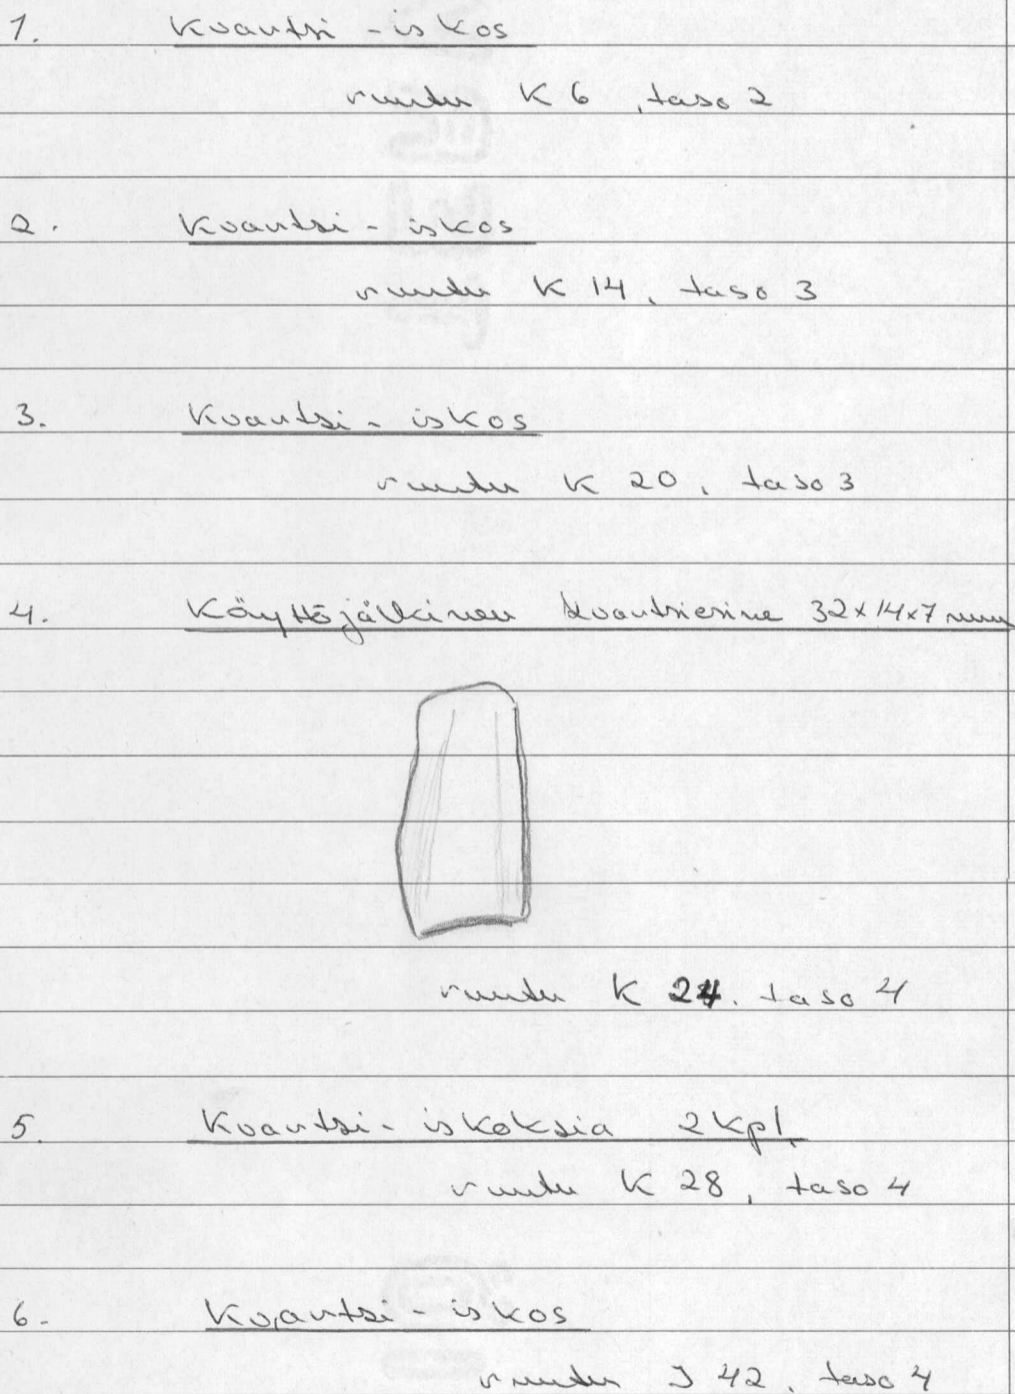 1. Kvartsi-iskos
ruutu K 6, taso 2
2. Kvartsi-iskos
ruutu K 14, taso 3
3. Kvartsi-iskos
ruutu K 20, taso 3
4. Käyttöjälkinen kvartsiesine 32x14x7 mm
ruutu K 24. taso 4
5. Kvartsi-iskoksia 2kpl.
ruutu K 28, taso 4
6. Kvartsi-iskos
ruutu J 42, taso 4